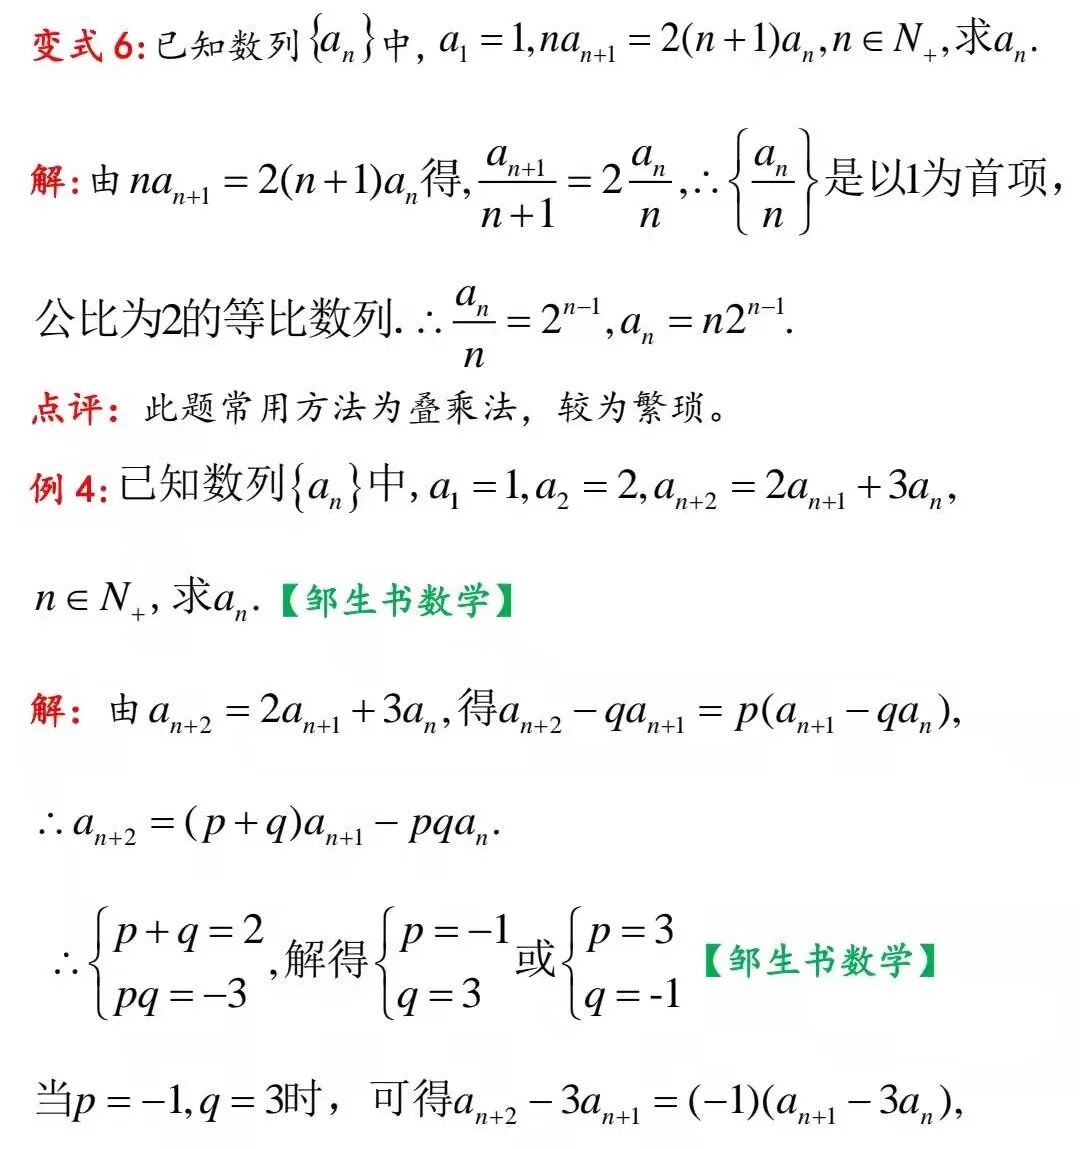 变式6:已知数列{aₙ}中, a₁ = 1, naₙ₊₁ = 2(n+1)aₙ, n ∈ N₊, 求aₙ.
解:由naₙ₊₁ = 2(n+1)aₙ得, \frac{aₙ₊₁}{n+1} = 2\frac{aₙ}{n}, ∴ {\frac{aₙ}{n}}是以1为首项，
公比为2的等比数列. ∴ \frac{aₙ}{n} = 2ⁿ⁻¹, aₙ = n2ⁿ⁻¹.
点评：此题常用方法为叠乘法，较为繁琐。
例4:已知数列{aₙ}中, a₁ = 1, a₂ = 2, aₙ₊₂ = 2aₙ₊₁ + 3aₙ,
n ∈ N₊, 求aₙ.【邹生书数学】
解：由aₙ₊₂ = 2aₙ₊₁ + 3aₙ, 得aₙ₊₂ − qaₙ₊₁ = p(aₙ₊₁ − qaₙ),
∴ aₙ₊₂ = (p+q)aₙ₊₁ − pqaₙ.
∴ {p+q = 2, pq = −3, 解得{p = −1, q = 3 或{p = 3, q = -1 【邹生书数学】
当p = −1, q = 3时，可得aₙ₊₂ − 3aₙ₊₁ = (−1)(aₙ₊₁ − 3aₙ),